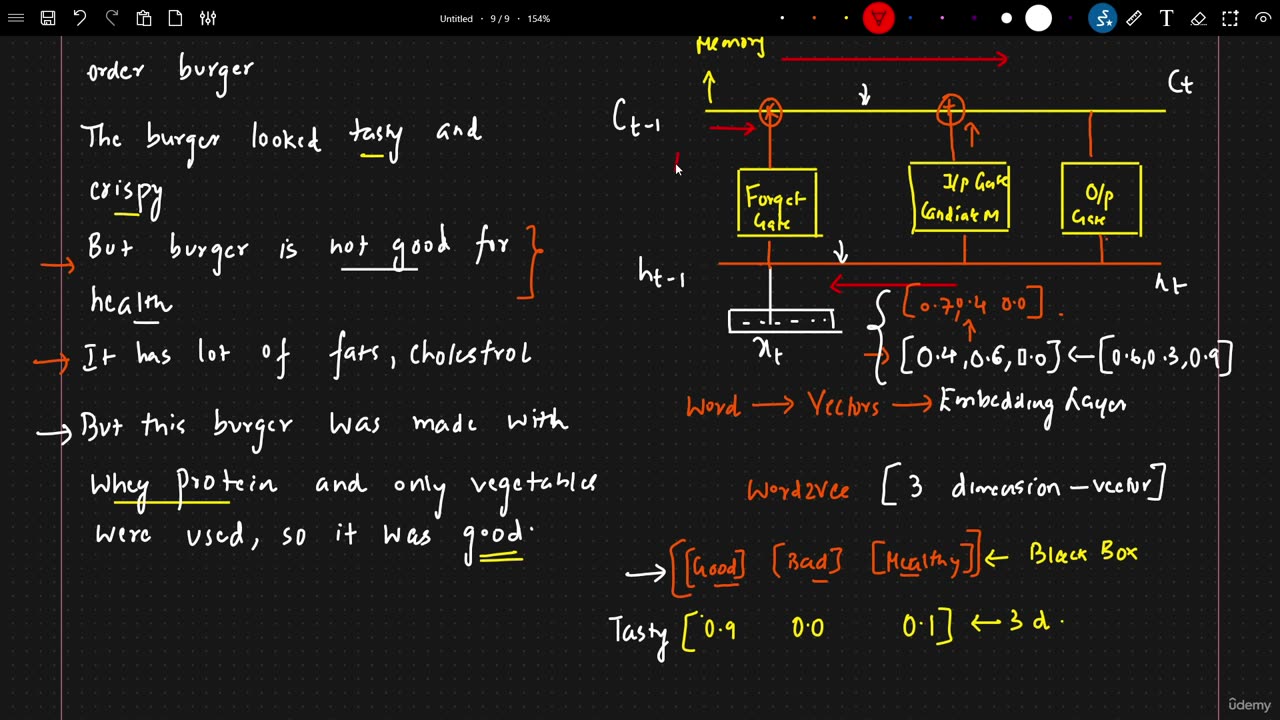 Untitled • 9 / 9 • 154%
order burger
The burger looked tasty and
crispy
But burger is not good for
health
It has lot of fats, cholestrol
But this burger was made with
whey protein and only vegetables
were used, so it was good.
Memory
Ct-1
Ct
Forget
Gate
I/p Gate
Candiate M
O/p
Gate
ht-1
ht
xt
[0.7, 0.4 0.0]
[0.4, 0.6, 0.0] ← [0.6, 0.3, 0.9]
Word → Vectors → Embedding Layer
Word2vec [3 dimension - vector]
→ [[Good] [Bad] [Healthy]] ← Black Box
Tasty [0.9 0.0 0.1] ← 3 d.
ûdemy